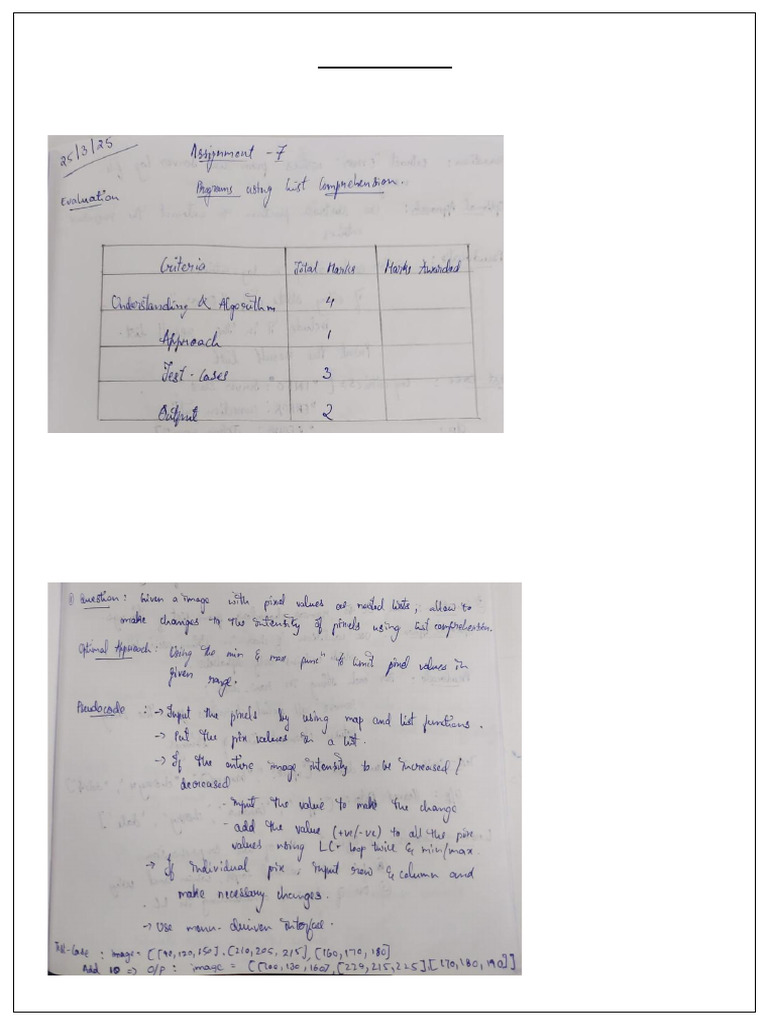 25/3/25
Assignment - 7
Programs using List Comprehension.
Evaluation
Criteria Total Marks Marks Awarded
Understanding & Algorithm 4
Approach 1
Test-Cases 3
Output 2
① Question: Given a image with pixel values as nested lists, allow to
make changes in the intensity of pixels using list comprehension.
Optimal Approach: Using the min & max funcⁿ to limit pixel values in
given range.
Pseudocode : → Input the pixels by using map and list functions.
→ Put the pix values in a list.
→ If the entire image intensity to be increased /
decreased
- input the value to make the change
- add the value (+ve/-ve) to all the pixe
values using LC - loop twice & min/max.
→ If individual pix, input row & column and
make necessary changes.
→ Use menu-driven interface.
Test-Case : image = [[90,120,150],[210,205,215],[160,170,180]
Add 10 => O/P : image = [[100,130,160],[220,215,225],[170,180,190]]